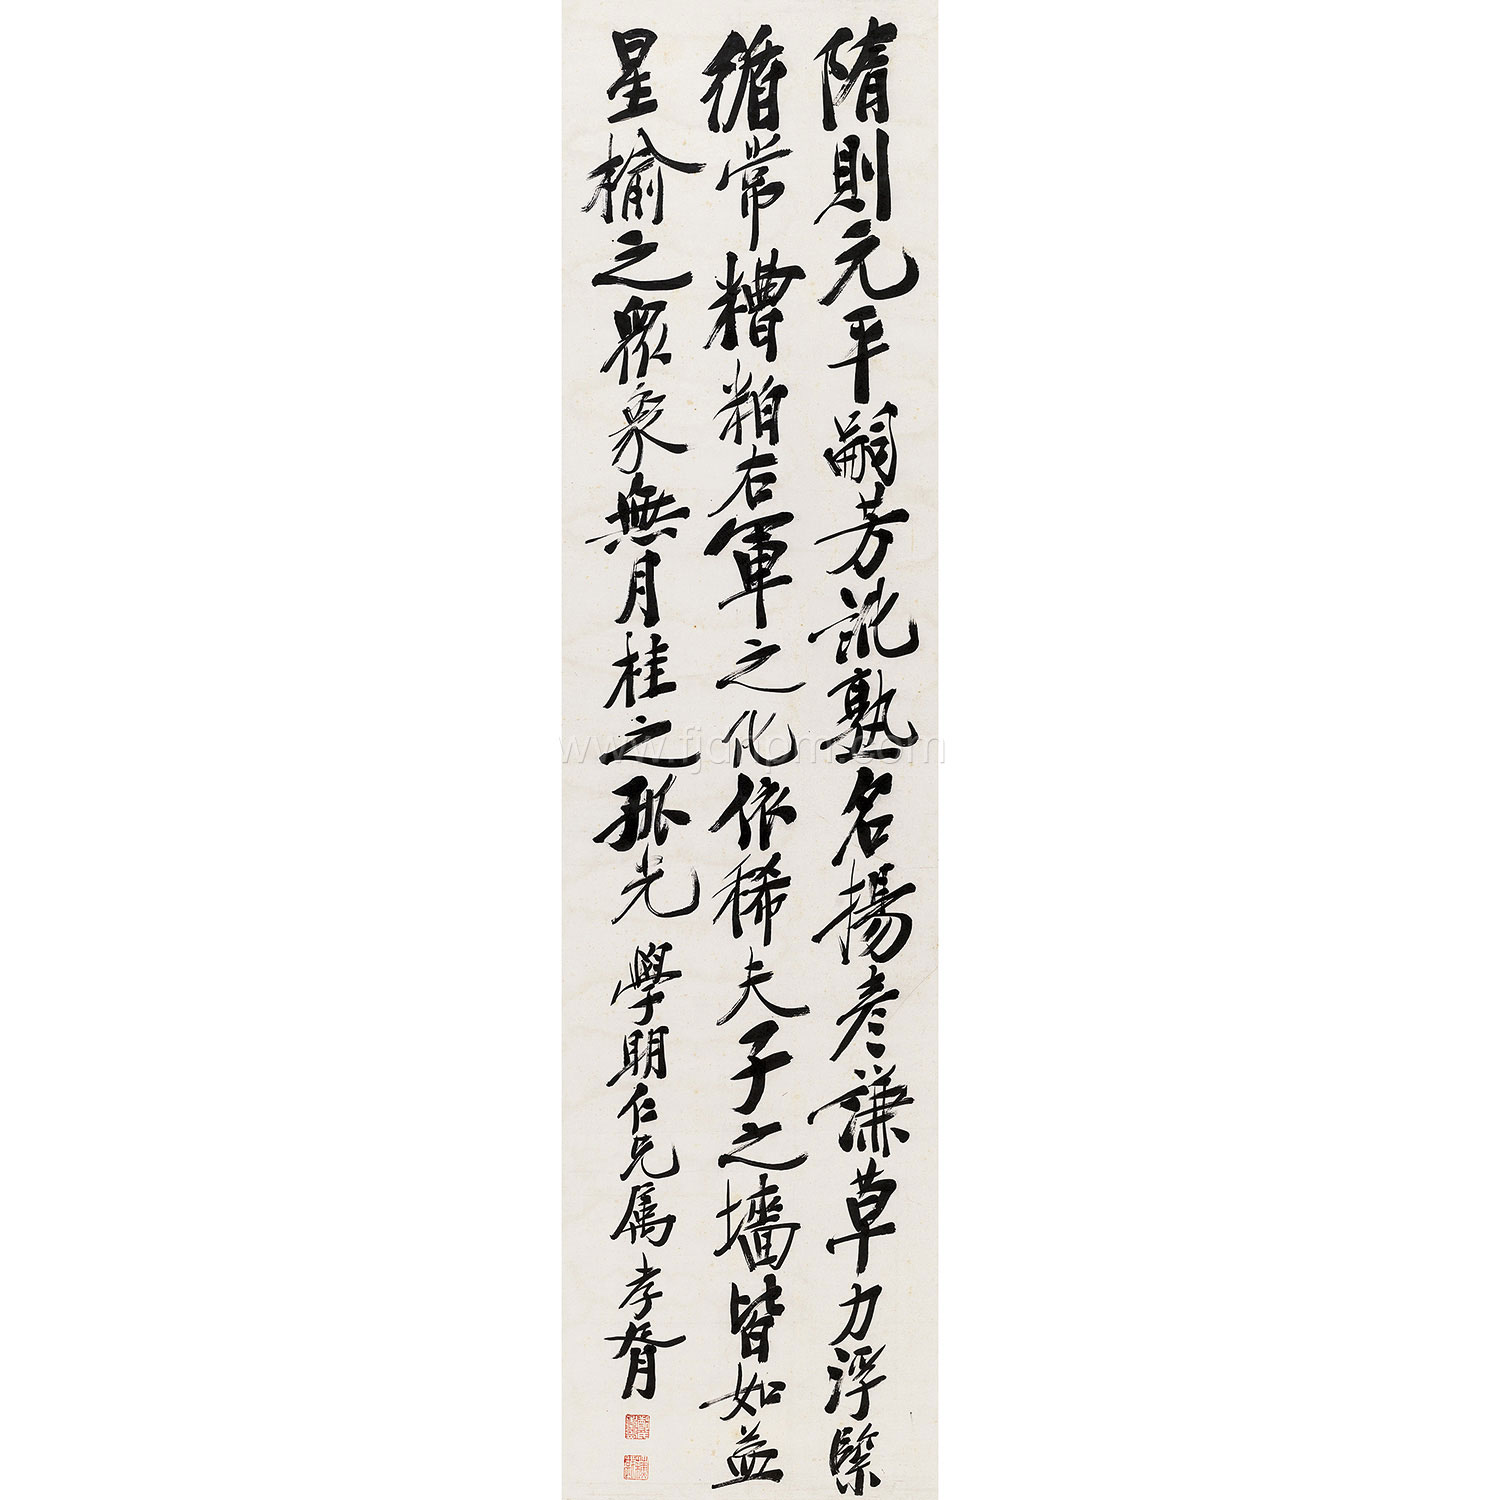 隋則元平嗣芳訛熟名揚彦謙草力浮緊
循常糟粕右軍之化依稀夫子之墻皆如並
星榆之眾象無月桂之孤光
學明仁兄属 孝胥
www.fjdnpm.com